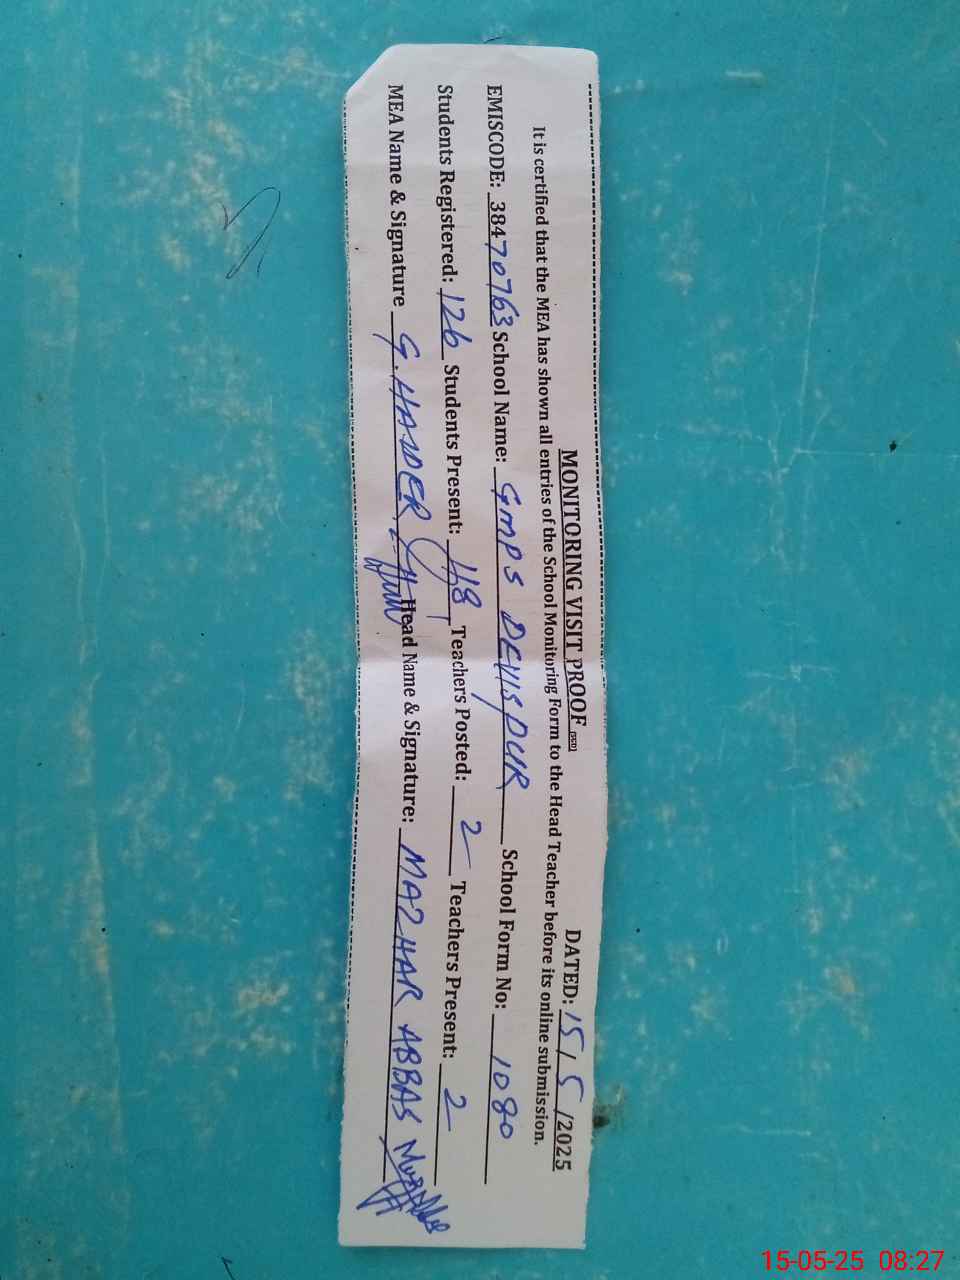 MONITORING VISIT PROOF (SED) DATED: 15 / 5 /2025
It is certified that the MEA has shown all entries of the School Monitoring Form to the Head Teacher before its online submission.
EMISCODE: 38470763 School Name: GMPS DEVISPUR School Form No: 1080
Students Registered: 126 Students Present: 118 Teachers Posted: 2 Teachers Present: 2
MEA Name & Signature G. HAIDER Head Name & Signature: MAZHAR ABBAS
15-05-25 08:27